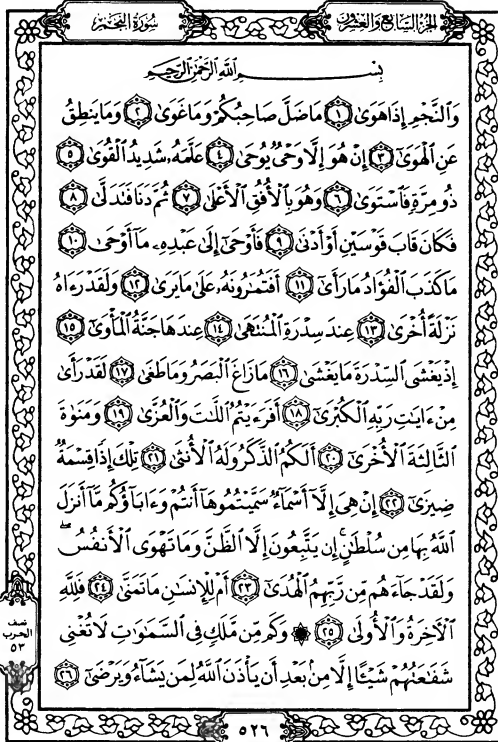 الجزء السابع والعشرون
سورة النجم
بِسْمِ اللَّهِ الرَّحْمَٰنِ الرَّحِيمِ
وَٱلنَّجْمِ إِذَا هَوَىٰ ١ مَا ضَلَّ صَاحِبُكُمْ وَمَا غَوَىٰ ٢ وَمَا يَنطِقُ
عَنِ ٱلْهَوَىٰٓ ٣ إِنْ هُوَ إِلَّا وَحْىٌ يُوحَىٰ ٤ عَلَّمَهُۥ شَدِيدُ ٱلْقُوَىٰ ٥
ذُو مِرَّةٍ فَٱسْتَوَىٰ ٦ وَهُوَ بِٱلْأُفُقِ ٱلْأَعْلَىٰ ٧ ثُمَّ دَنَا فَتَدَلَّىٰ ٨
فَكَانَ قَابَ قَوْسَيْنِ أَوْ أَدْنَىٰ ٩ فَأَوْحَىٰٓ إِلَىٰ عَبْدِهِۦ مَآ أَوْحَىٰ ١٠
مَا كَذَبَ ٱلْفُؤَادُ مَا رَأَىٰٓ ١١ أَفَتُمَٰرُونَهُۥ عَلَىٰ مَا يَرَىٰ ١٢ وَلَقَدْ رَءَاهُ
نَزْلَةً أُخْرَىٰ ١٣ عِندَ سِدْرَةِ ٱلْمُنتَهَىٰ ١٤ عِندَهَا جَنَّةُ ٱلْمَأْوَىٰٓ ١٥
إِذْ يَغْشَى ٱلسِّدْرَةَ مَا يَغْشَىٰ ١٦ مَا زَاغَ ٱلْبَصَرُ وَمَا طَغَىٰ ١٧ لَقَدْ رَأَىٰ
مِنْ ءَايَٰتِ رَبِّهِ ٱلْكُبْرَىٰٓ ١٨ أَفَرَءَيْتُمُ ٱللَّٰتَ وَٱلْعُزَّىٰ ١٩ وَمَنَوٰةَ
ٱلثَّالِثَةَ ٱلْأُخْرَىٰٓ ٢٠ أَلَكُمُ ٱلذَّكَرُ وَلَهُ ٱلْأُنثَىٰ ٢١ تِلْكَ إِذًا قِسْمَةٌ
ضِيزَىٰٓ ٢٢ إِنْ هِىَ إِلَّآ أَسْمَآءٌ سَمَّيْتُمُوهَآ أَنتُمْ وَءَابَآؤُكُم مَّآ أَنزَلَ
ٱللَّهُ بِهَا مِن سُلْطَٰنٍ ۚ إِن يَتَّبِعُونَ إِلَّا ٱلظَّنَّ وَمَا تَهْوَى ٱلْأَنفُسُ ۖ
وَلَقَدْ جَآءَهُم مِّن رَّبِّهِمُ ٱلْهُدَىٰٓ ٢٣ أَمْ لِلْإِنسَٰنِ مَا تَمَنَّىٰ ٢٤ فَلِلَّهِ
ٱلْآخِرَةُ وَٱلْأُولَىٰ ٢٥ ۞ وَكَم مِّن مَّلَكٍ فِى ٱلسَّمَٰوَٰتِ لَا تُغْنِى
شَفَٰعَتُهُمْ شَيْـًٔا إِلَّا مِنۢ بَعْدِ أَن يَأْذَنَ ٱللَّهُ لِمَن يَشَآءُ وَيَرْضَىٰٓ ٢٦
نصف
الحزب
٥٣
٥٢٦